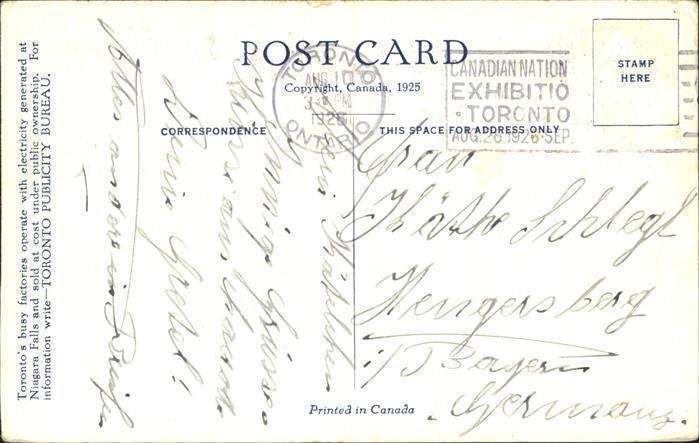 Toronto's busy factories operate with electricity generated at
Niagara Falls and sold at cost under public ownership. For
information write—TORONTO PUBLICITY BUREAU.
POST CARD
Copyright, Canada, 1925
CORRESPONDENCE
THIS SPACE FOR ADDRESS ONLY
STAMP
HERE
TORONTO
AUG 10
PM
1926
ONTARIO
CANADIAN NATION
EXHIBITIO
TORONTO
AUG.28 1926 SEP.
Mein Käthchen
Innige Grüsse
aus Canada
Deine Gretel!
Alles andere in Briefen
Frau
Käthe Schlegl
Hengersberg
i/Bayern
Germany.
Printed in Canada